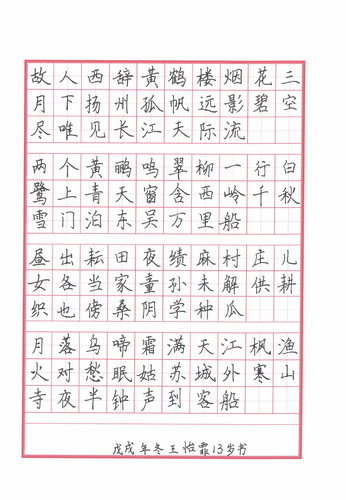 故人西辞黄鹤楼烟花三
月下扬州孤帆远影碧空
尽唯见长江天际流
两个黄鹂鸣翠柳一行白
鹭上青天窗含西岭千秋
雪门泊东吴万里船
昼出耘田夜绩麻村庄儿
女各当家童孙未解供耕
织也傍桑阴学种瓜
月落乌啼霜满天江枫渔
火对愁眠姑苏城外寒山
寺夜半钟声到客船
戊戌年冬王怡霏13岁书